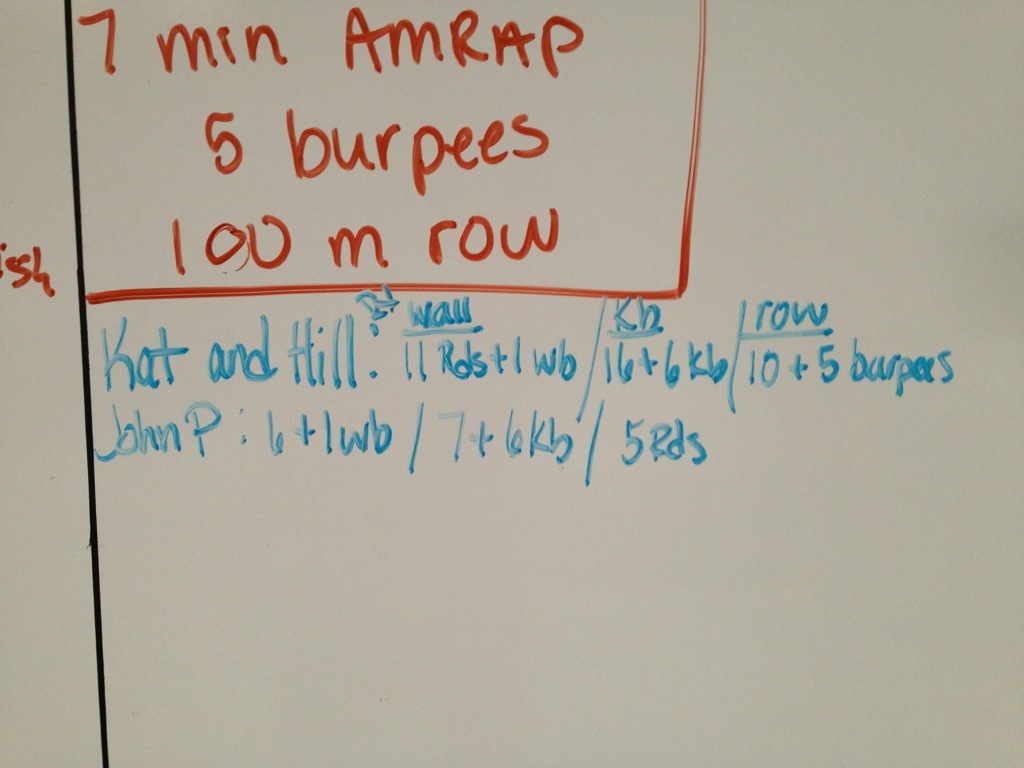 7 min AMRAP
5 burpees
100 m row
wall / Kb / row
Kat and Hill: 11 Rds + 1 wb / 16 + 6 kb / 10 + 5 burpees
John P: 6 + 1 wb / 7 + 6 Kb / 5 Rds